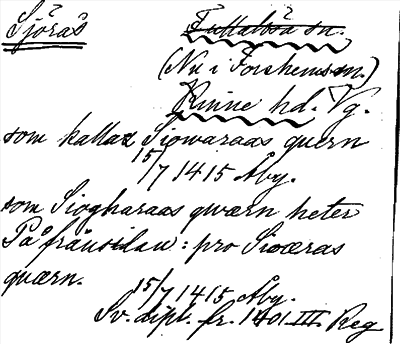 Sjörås
Fullösa sn.
(Nu i Forshems sn.)
Kinne hd. Vg.
som kallaz Siowaraas quern
15/7 1415 Åby.
som Siogharaas qwærn heter
På frånsidan: pro Siöæras
quærn.
15/7 1415 Åby.
Sv. dipl. fr. 1401 III. Reg